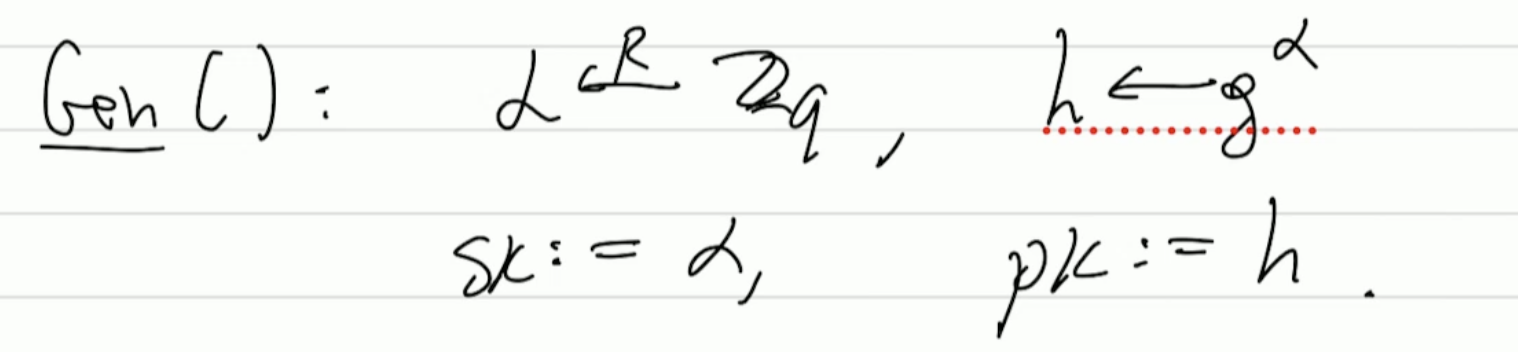 Gen(): α ←ᴿ ℤq, h ← g^α
sk := α, pk := h.